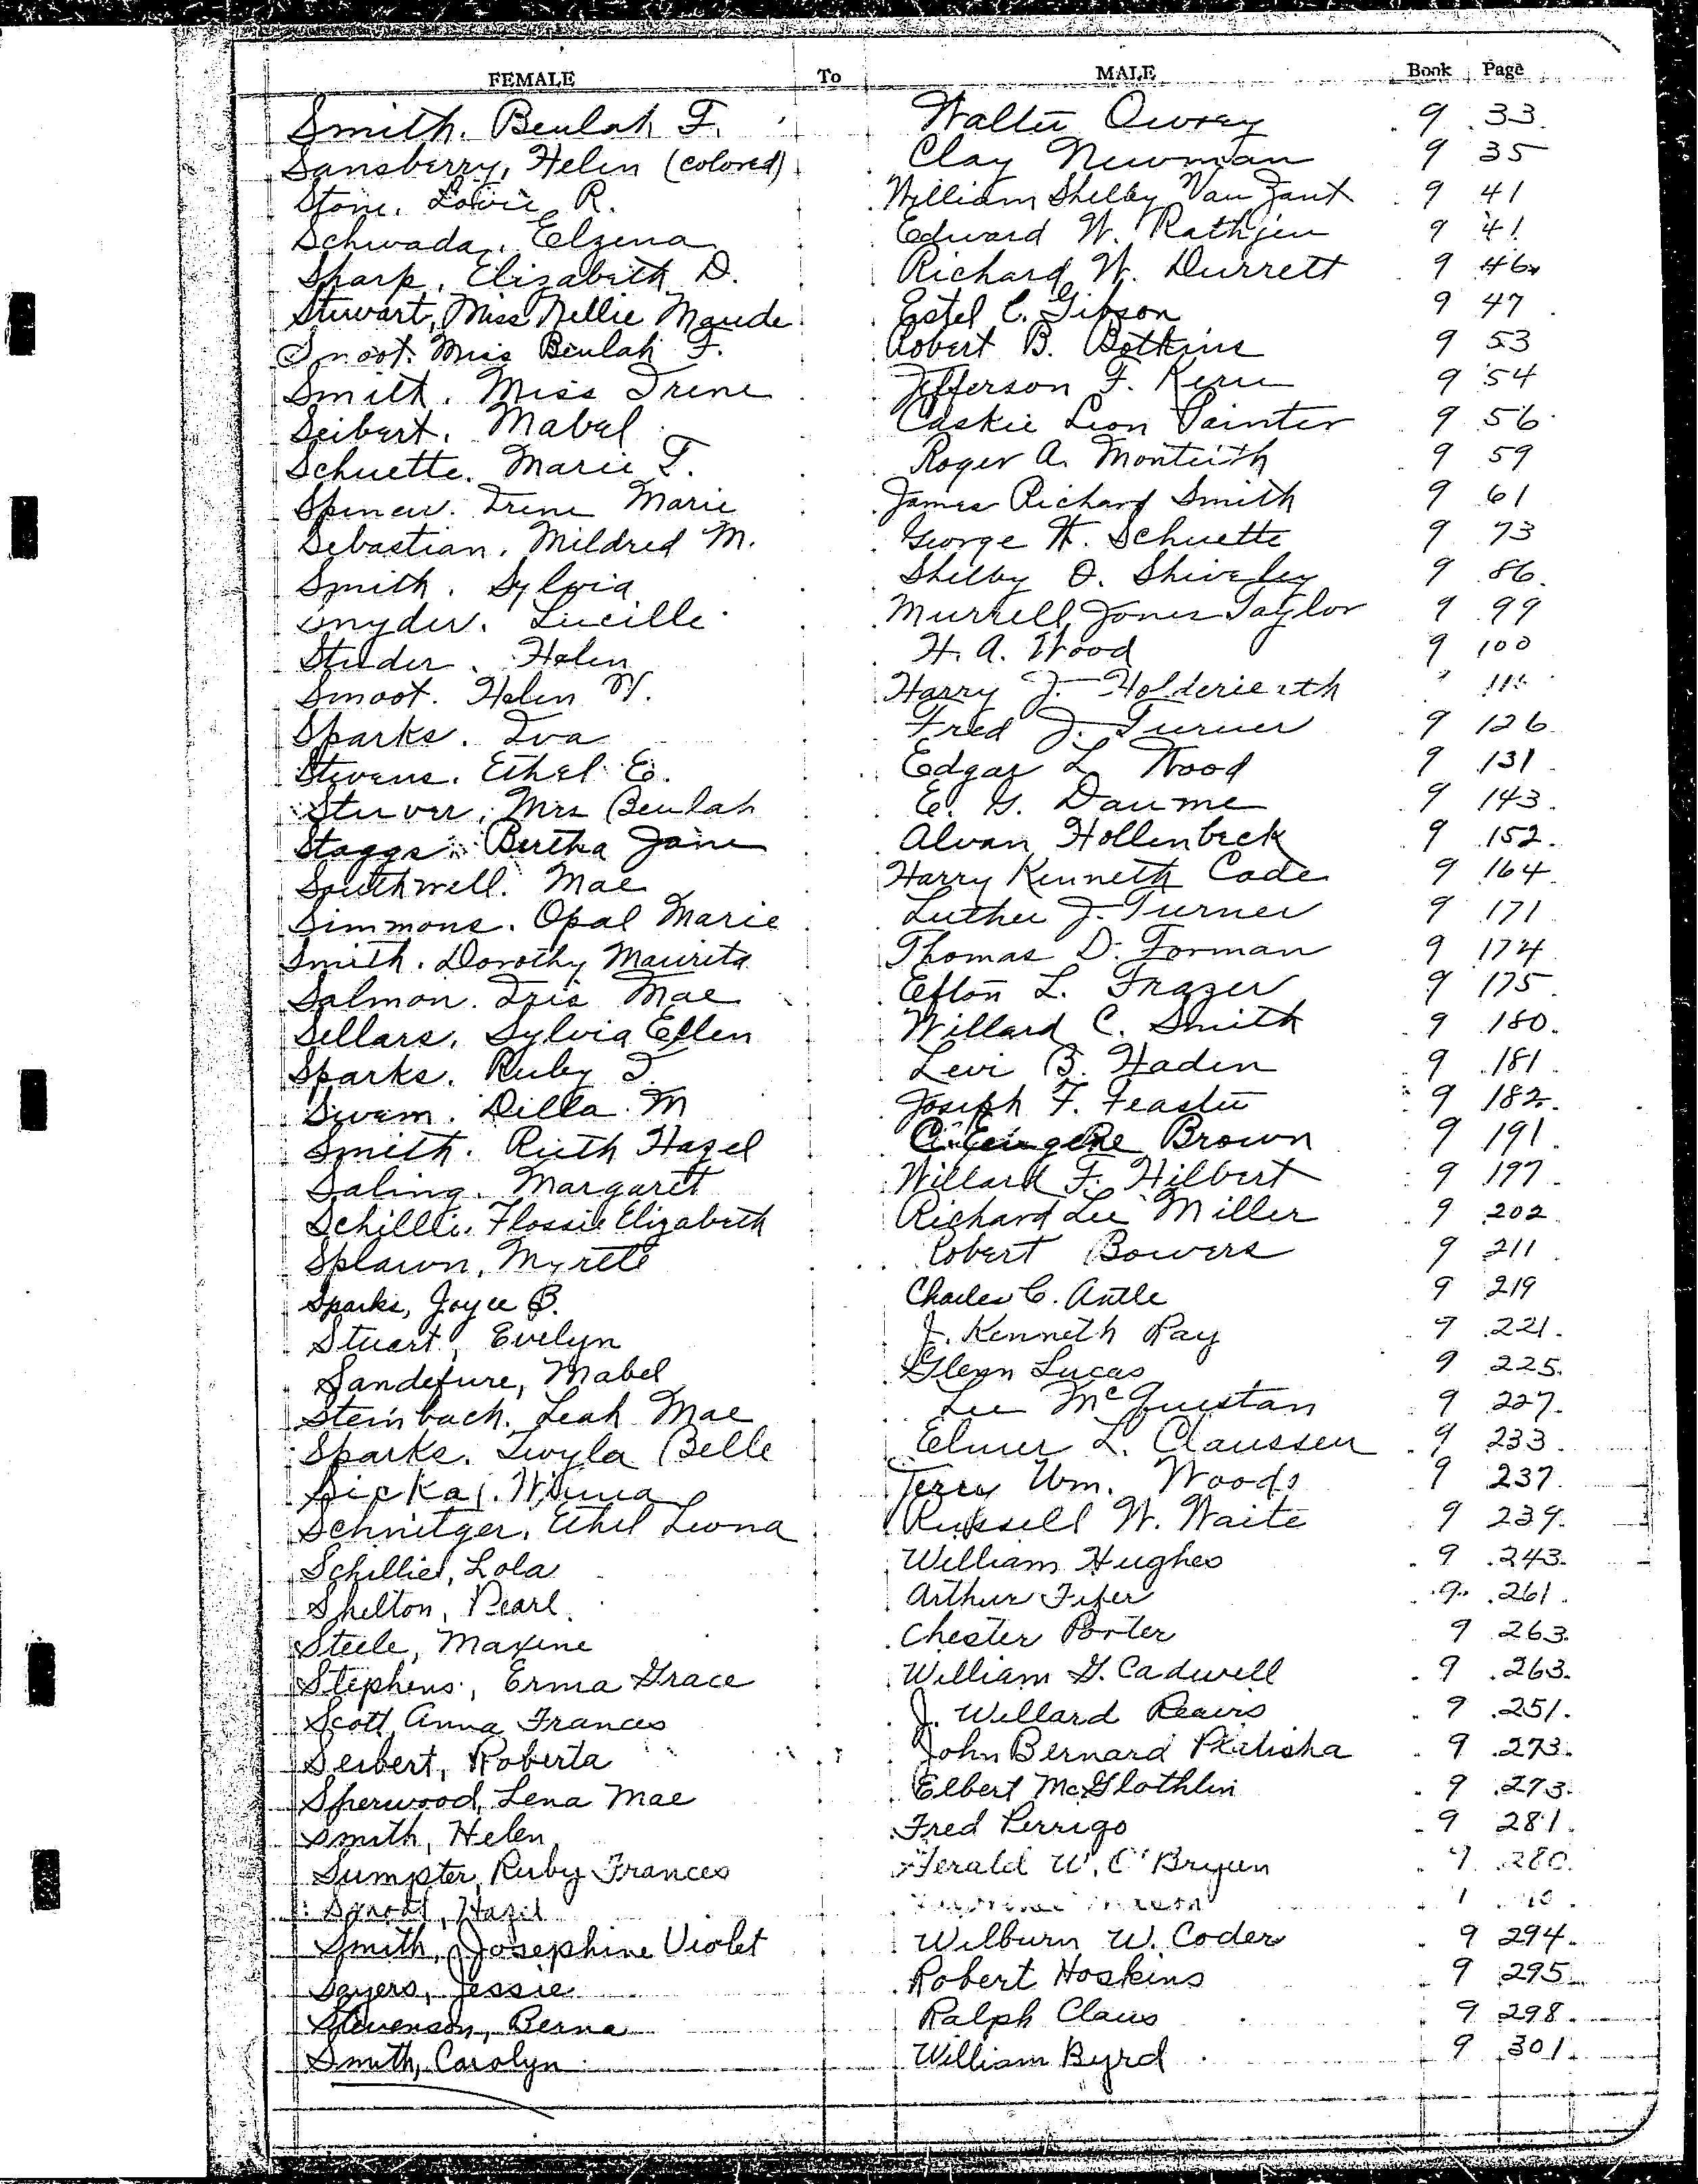 FEMALE To MALE Book Page
Smith. Beulah F. Walter Owrey 9 33
Sansberry, Helen (colored) Clay Newman 9 35
Stone. Lovie R. William Shelby Van Zant 9 41
Schwada, Elzena Edward W. Rathjen 9 41
Sharp, Elizabeth D. Richard W. Durrett 9 46
Stewart, Miss Nellie Maude Estel C. Gibson 9 47
Smoot. Miss Beulah F. Robert B. Botkins 9 53
Smith. Miss Irene Jefferson F. Kern 9 54
Seibert. Mabel Caskie Leon Painter 9 56
Schuette. Marie F. Roger A. Monteith 9 59
Spencer. Irene Marie James Richard Smith 9 61
Sebastian. Mildred M. George H. Schuette 9 73
Smith. Sylvia Shelby O. Shiveley 9 86
Snyder. Lucille Murrell Jones Taylor 9 99
Studer. Helen H. A. Wood 9 100
Smoot. Helen W. Harry J.
Sparks. Iva Fred J. Turner 9 126
Stevens. Ethel E. Edgar L Wood 9 131
Mrs Beulah E. G. Daume 9 143
Staggs. Bertha Jane Alvan Hollenbeck 9 152
Southwell. Mae Harry Kenneth Cade 9 164
Simmons. Opal Marie Luther J. Turner 9 171
Smith. Dorothy Maurita Thomas D. Forman 9 174
Salmon. Iris Mae Efton L. Frazer 9 175
Sellars. Sylvia Ellen Willard C. Smith 9 180
Sparks. Ruby I. Levi B. Haden 9 181
Swam. Dilla M Joseph F. Feaster 9 182
Smith. Ruth Hazel C. Eugene Brown 9 191
Saling. Margaret Willard F. Hilbert 9 197
Schillie. Flossie Elizabeth Richard Lee Miller 9 202
Splawn, Myrtle Robert Bowers 9 211
Sparks, Joyce B. Charles C. Antle 9 219
Stuart, Evelyn J. Kenneth Ray 9 221
Sandefure, Mabel Glenn Lucas 9 225
Steinbach. Leah Mae Lee McQuistan 9 227
Sparks. Twyla Belle Elmer L. Claussen 9 233
Terry Wm. Woods 9 237
Schnitger. Ethel Leona Russell W. Waite 9 239
Schillie, Lola William Hughes 9 243
Shelton, Pearl Arthur Fifer 9 261
Steele, Maxine Chester Porter 9 263
Stephens, Erma Grace William G. Cadwell 9 263
Scott, Anna Frances J. Willard Reavis 9 251
Seibert, Roberta John Bernard 9 273
Sherwood, Lena Mae Elbert McGlothlin 9 273
Smith, Helen Fred Perrigo 9 281
Sumpter, Ruby Frances Gerald W. O'Bryen 9 280
Smoot, Hazel
Smith, Josephine Violet Wilburn W. Coder 9 294
Sayers, Jessie Robert Hoskins 9 295
Stevenson, Berna Ralph Claus 9 298
Smith, Carolyn William Byrd 9 301